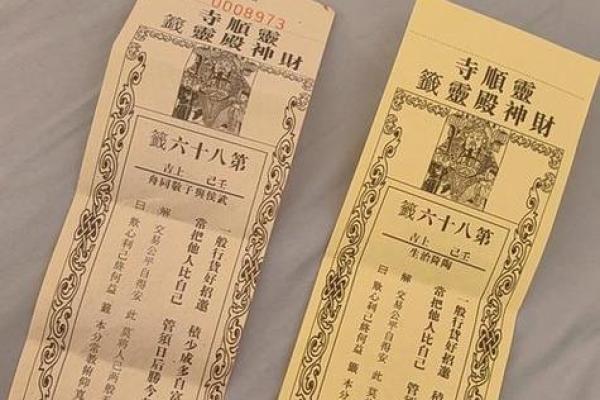 0008973
靈順寺
財神殿靈籤
第八十六籤
壬己 上吉
武侯與子敬同舟
一般行貨好招邀 積少成多自富
常把他人比自己 管須日后勝今
解 交易公平自得安 此 莫將人己兩般
曰 欺心利己終何益 籤 本分常教俯仰寬
靈順寺
財神殿靈籤
第八十六籤
壬己 上吉
陶隆治生
一般行貨好招邀 積
常把他人比自己 管
解 交易公平自得安 此 莫
曰 欺心利己終何益 籤 本